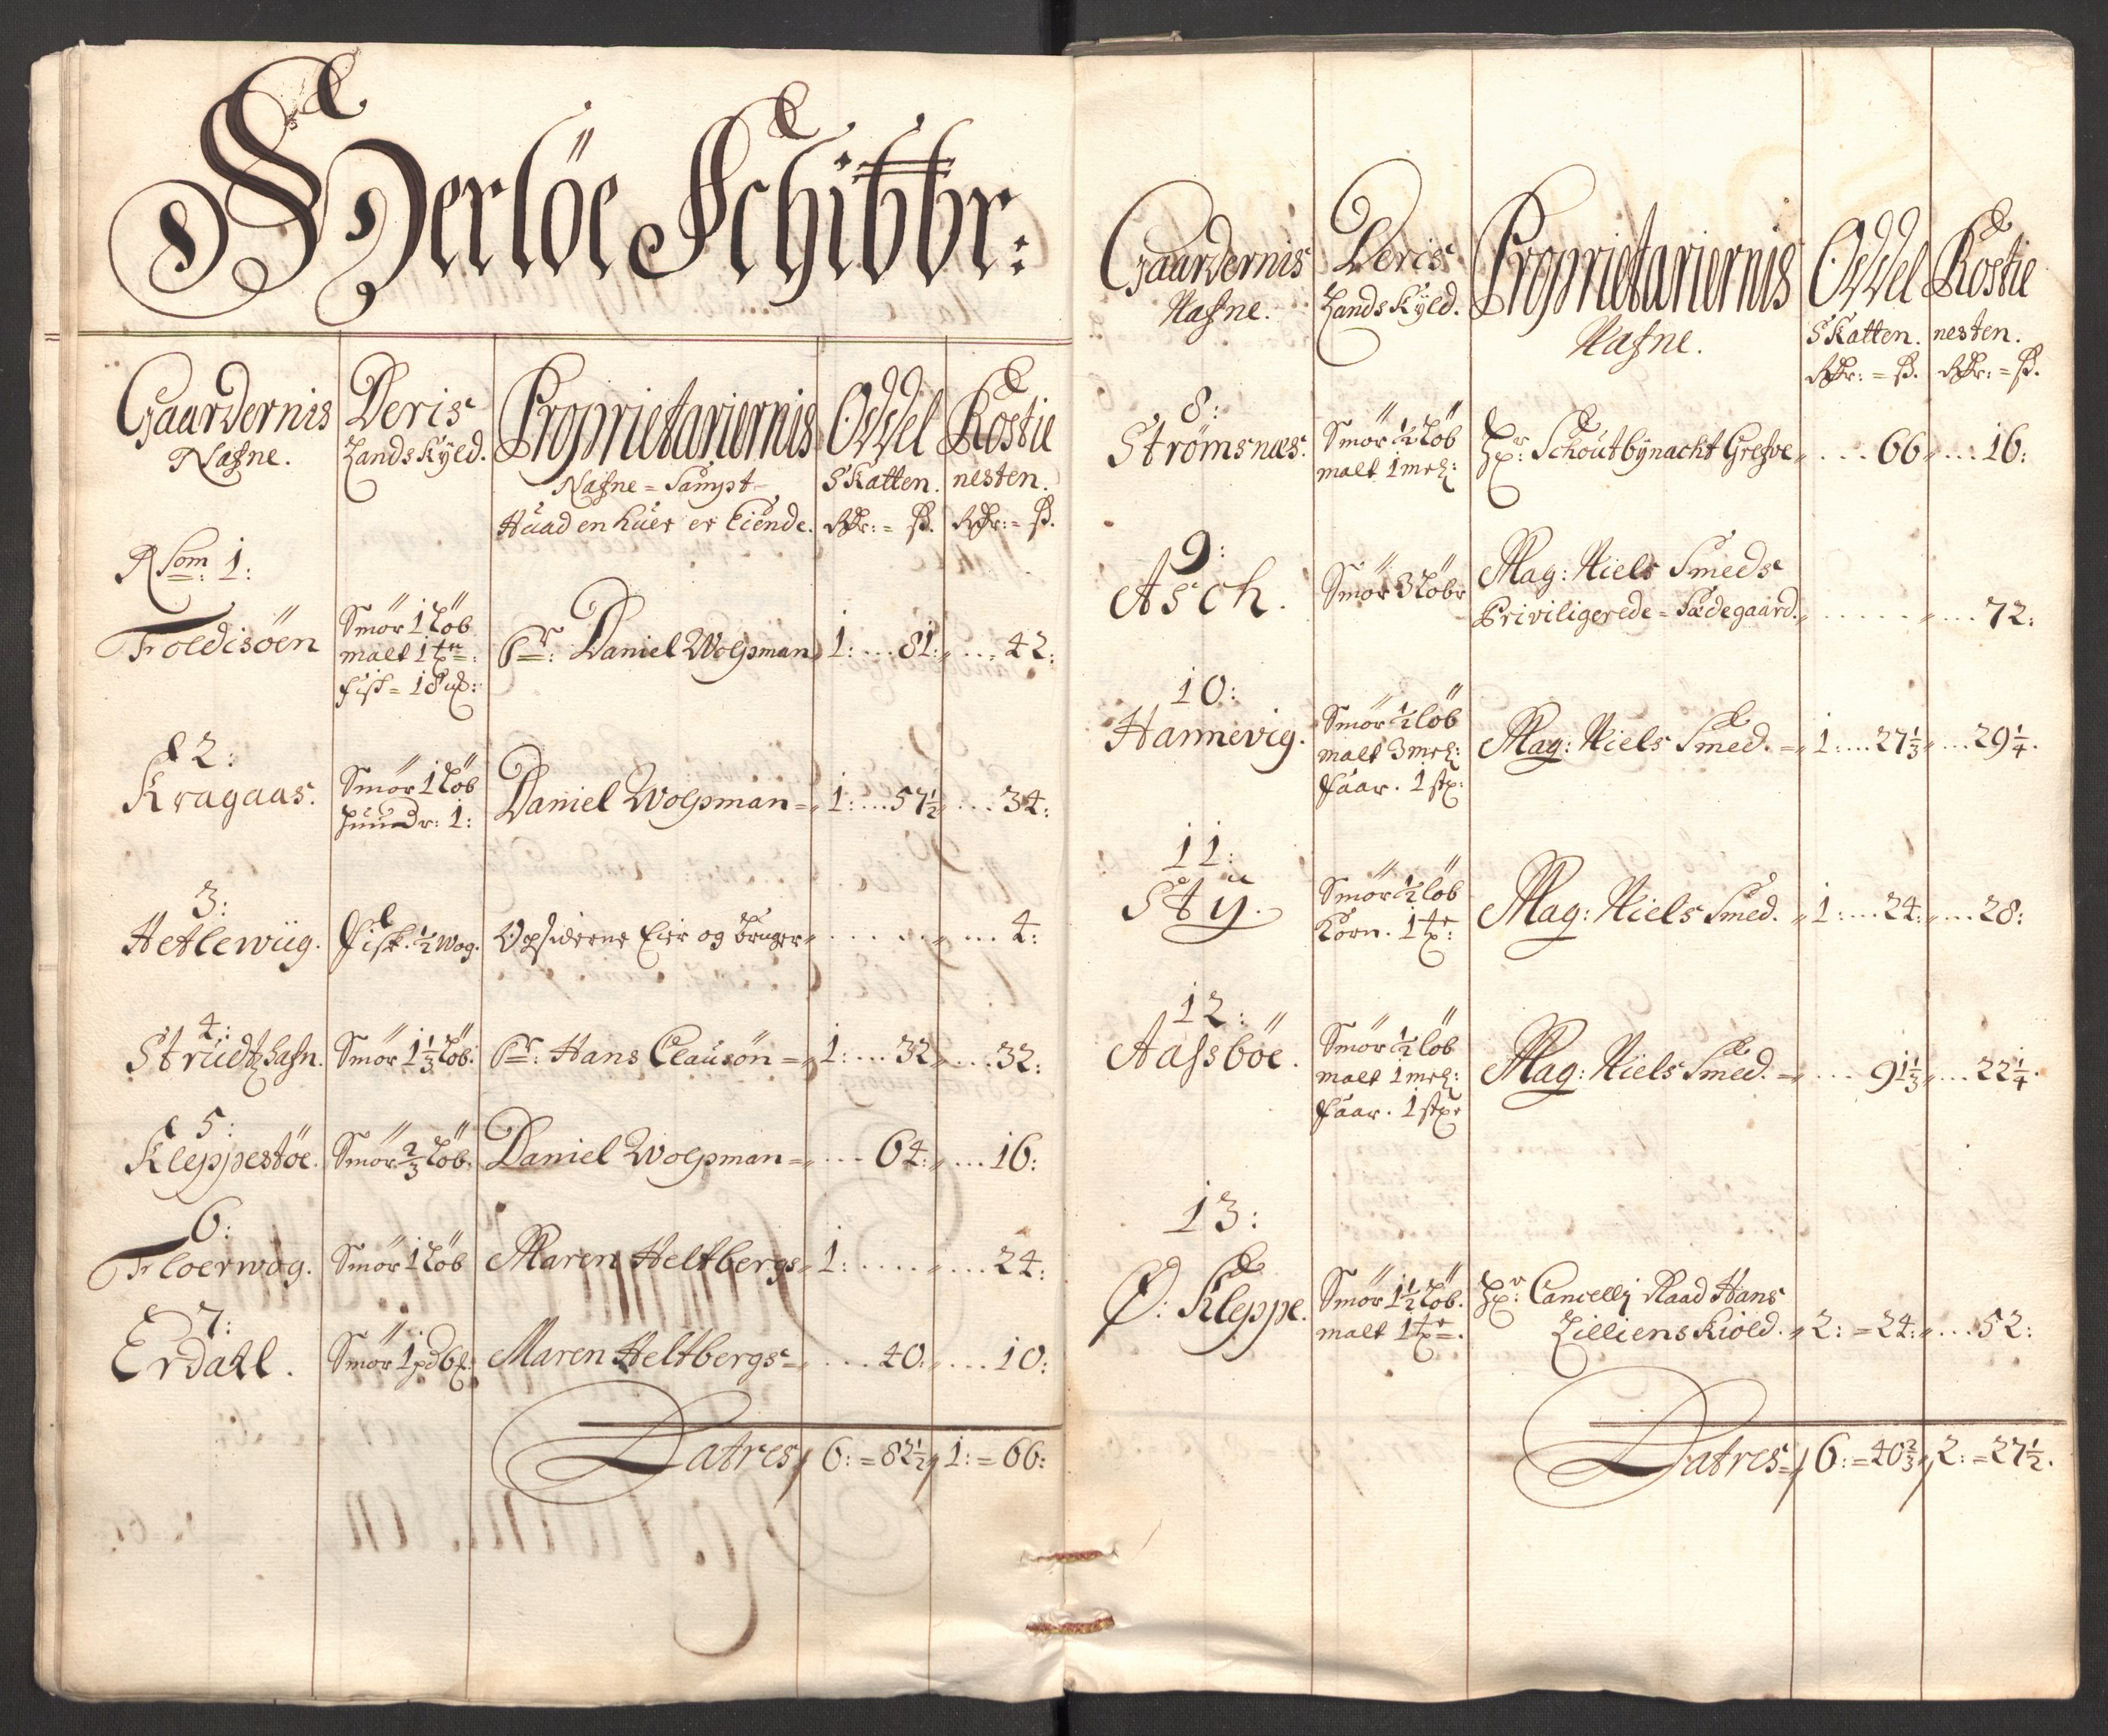 Herlöe Schibbr:
Gaardernis Nafne.
Deris Landskyld.
Proprietariernis Nafne = Sampt
Huad en huer er Eiende.
OWel Skatten. Rdr: = ß.
Kostie nesten. Rdr: = ß.
Som 1:
Foldisöen
Smör 1 Löb
malt 1 tr:
fisk = 18
Sr: Daniel Wolpman 1: ... 81: ... 42:
2:
Kragaas.
Smör 1 Löb
Huudr: 1:
Daniel Wolpman = 1: ... 57½ ... 34:
3:
Hetlewiig. Fisk. ½ Wog. Opsiderne Eier og bruger ... ... 4:
4:
Strudtzhafn. Smör 1⅓ Löb: Sr: Hans Clausön = 1: ... 32 ... 32:
5:
Kleppestöe. Smör ⅔ Löb. Daniel Wolpman = ... 64: ... 16:
6:
Floerwog. Smör 1 Löb Maren Heltbergs 1: ... ... 24:
7:
Erdall. Smör 1 pd Maren Heltbergs = ... 40: ... 10:
Latres 6: = 82½ 1: = 66:
Gaardernis Nafne.
Deris Landskyld.
Proprietariernis Nafne.
OWel Skatten. Rdr: = ß.
Kostie nesten. Rdr: = ß.
8:
Strömsnæs.
Smör ½ Löb
malt 1 mel:
Hr: Schoutbynacht Grefve ... 66 ... 16:
9:
Asch. Smör 3 Löbr
Mag: Niels Smeds
Priviligerede = Sædegaard. ... ... 72:
10:
Hannevig.
Smör ½ löb
malt 3 mel:
faar. 1 st:
Mag: Niels Smed. = 1: ... 27⅓ ... 29¼.
11:
Sty.
Smör ½ löb
Korn. 1 tr:
Mag: Niels Smed. 1: ... 24: ... 28:
12:
Aassböe.
Smör ½ löb
malt 1 mel:
faar. 1 st:
Mag: Niels Smed. = ... 91⅓ ... 22¼.
13:
Ø: Kleppe.
Smör 1½ Löb.
malt 1 tr:
Hr: Cancellj Raad Hans
Lillienskiold. 2: = 24: ... 52:
Latres = 6: = 40⅔ 2: = 27½.